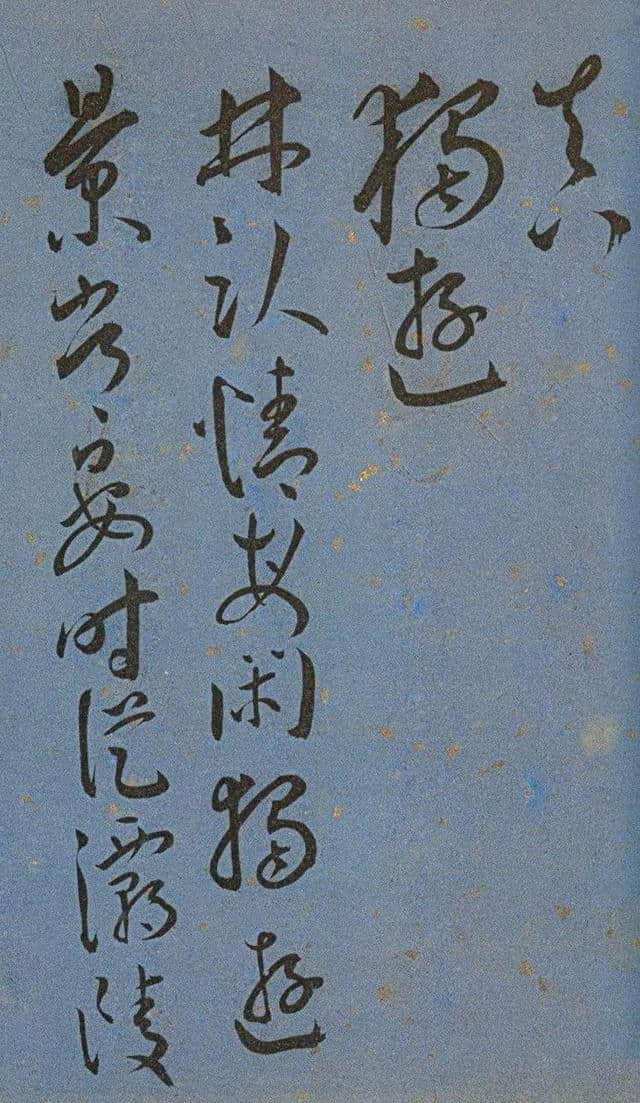 獨遊
林臥情每閑獨遊
景常晏時從灞陵